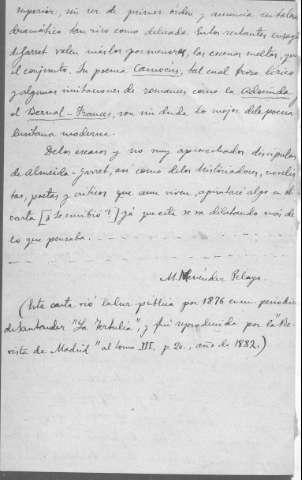 superior, un ser de primer orden y anuncia un talento
dramático tan rico como delicado. En los restantes ensayos
de Garret valen más los pormenores, las escenas sueltas, que
el conjunto. Su poema Camoens, tal cual trozo lírico
y algunas imitaciones de romances como la Adozinda y
el Bernal-Frances, son sin duda lo mejor de la poesía
lusitana moderna.
De los escasos y no muy aprovechados discípulos
de Almeida-Garret, así como de los historiadores, novelis
tas, poetas y críticos que aun viven, apuntaré algo en otra
carta [¿o se escribió?] ya que esta se va dilatando más de
lo que pensaba.
M. Menéndez Pelayo
(Esta carta vió la luz pública por 1876 en un periódico
de Santander "La Tertulia", y fué reproducida por la "Re-
vista de Madrid" al tomo III, p. 20., año de 1882.)